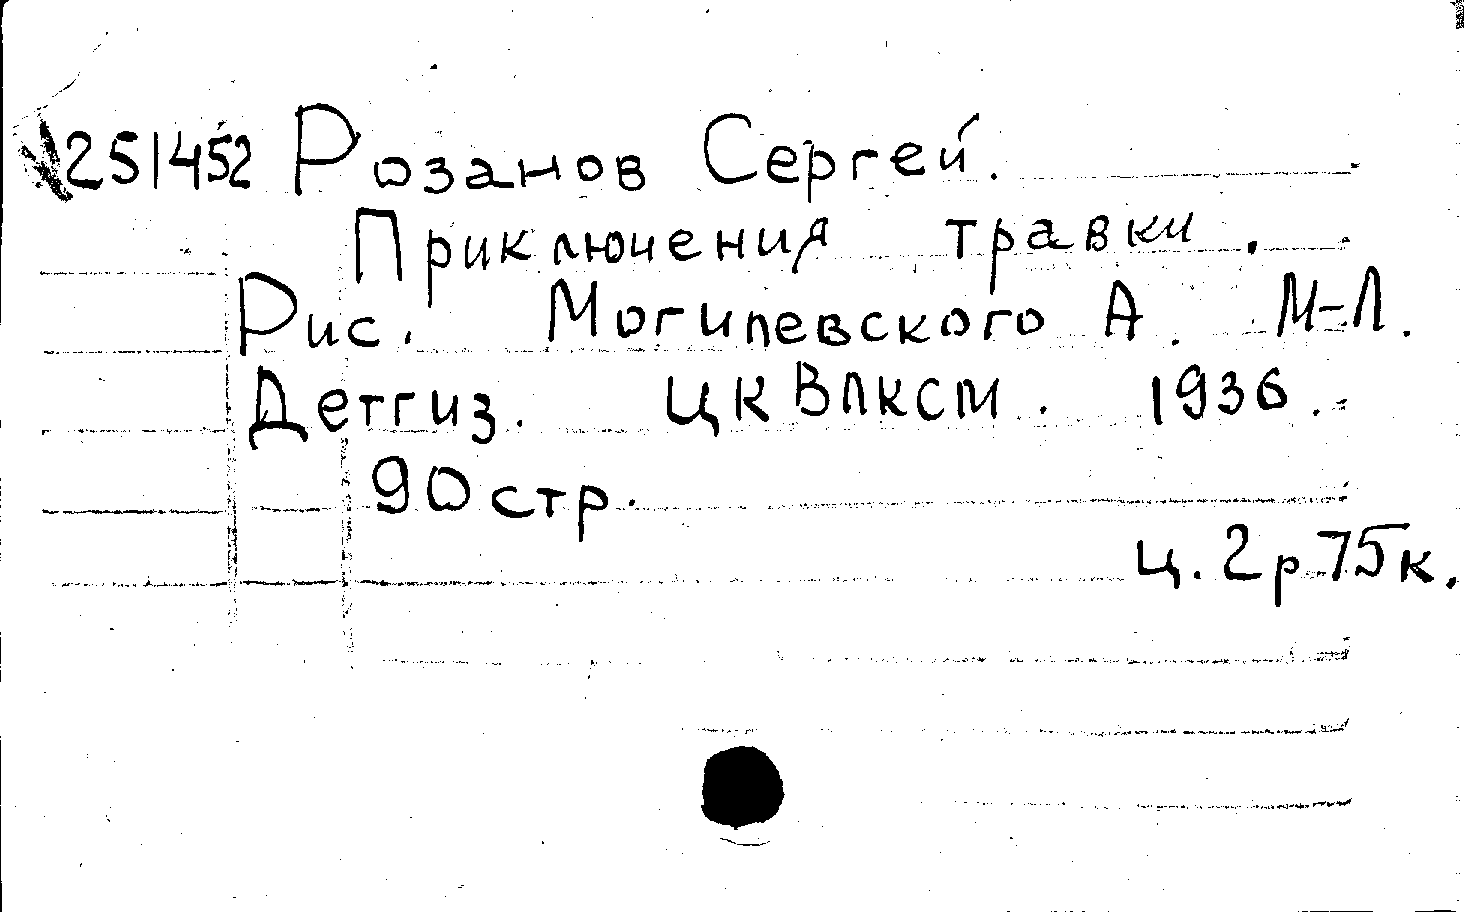 251452 Розанов Сергей.
Приключения травки.
Рис. Могилевского А. М-Л.
Детгиз. ЦК ВЛКСМ. 1936.
90 стр.
ц. 2р 75к.